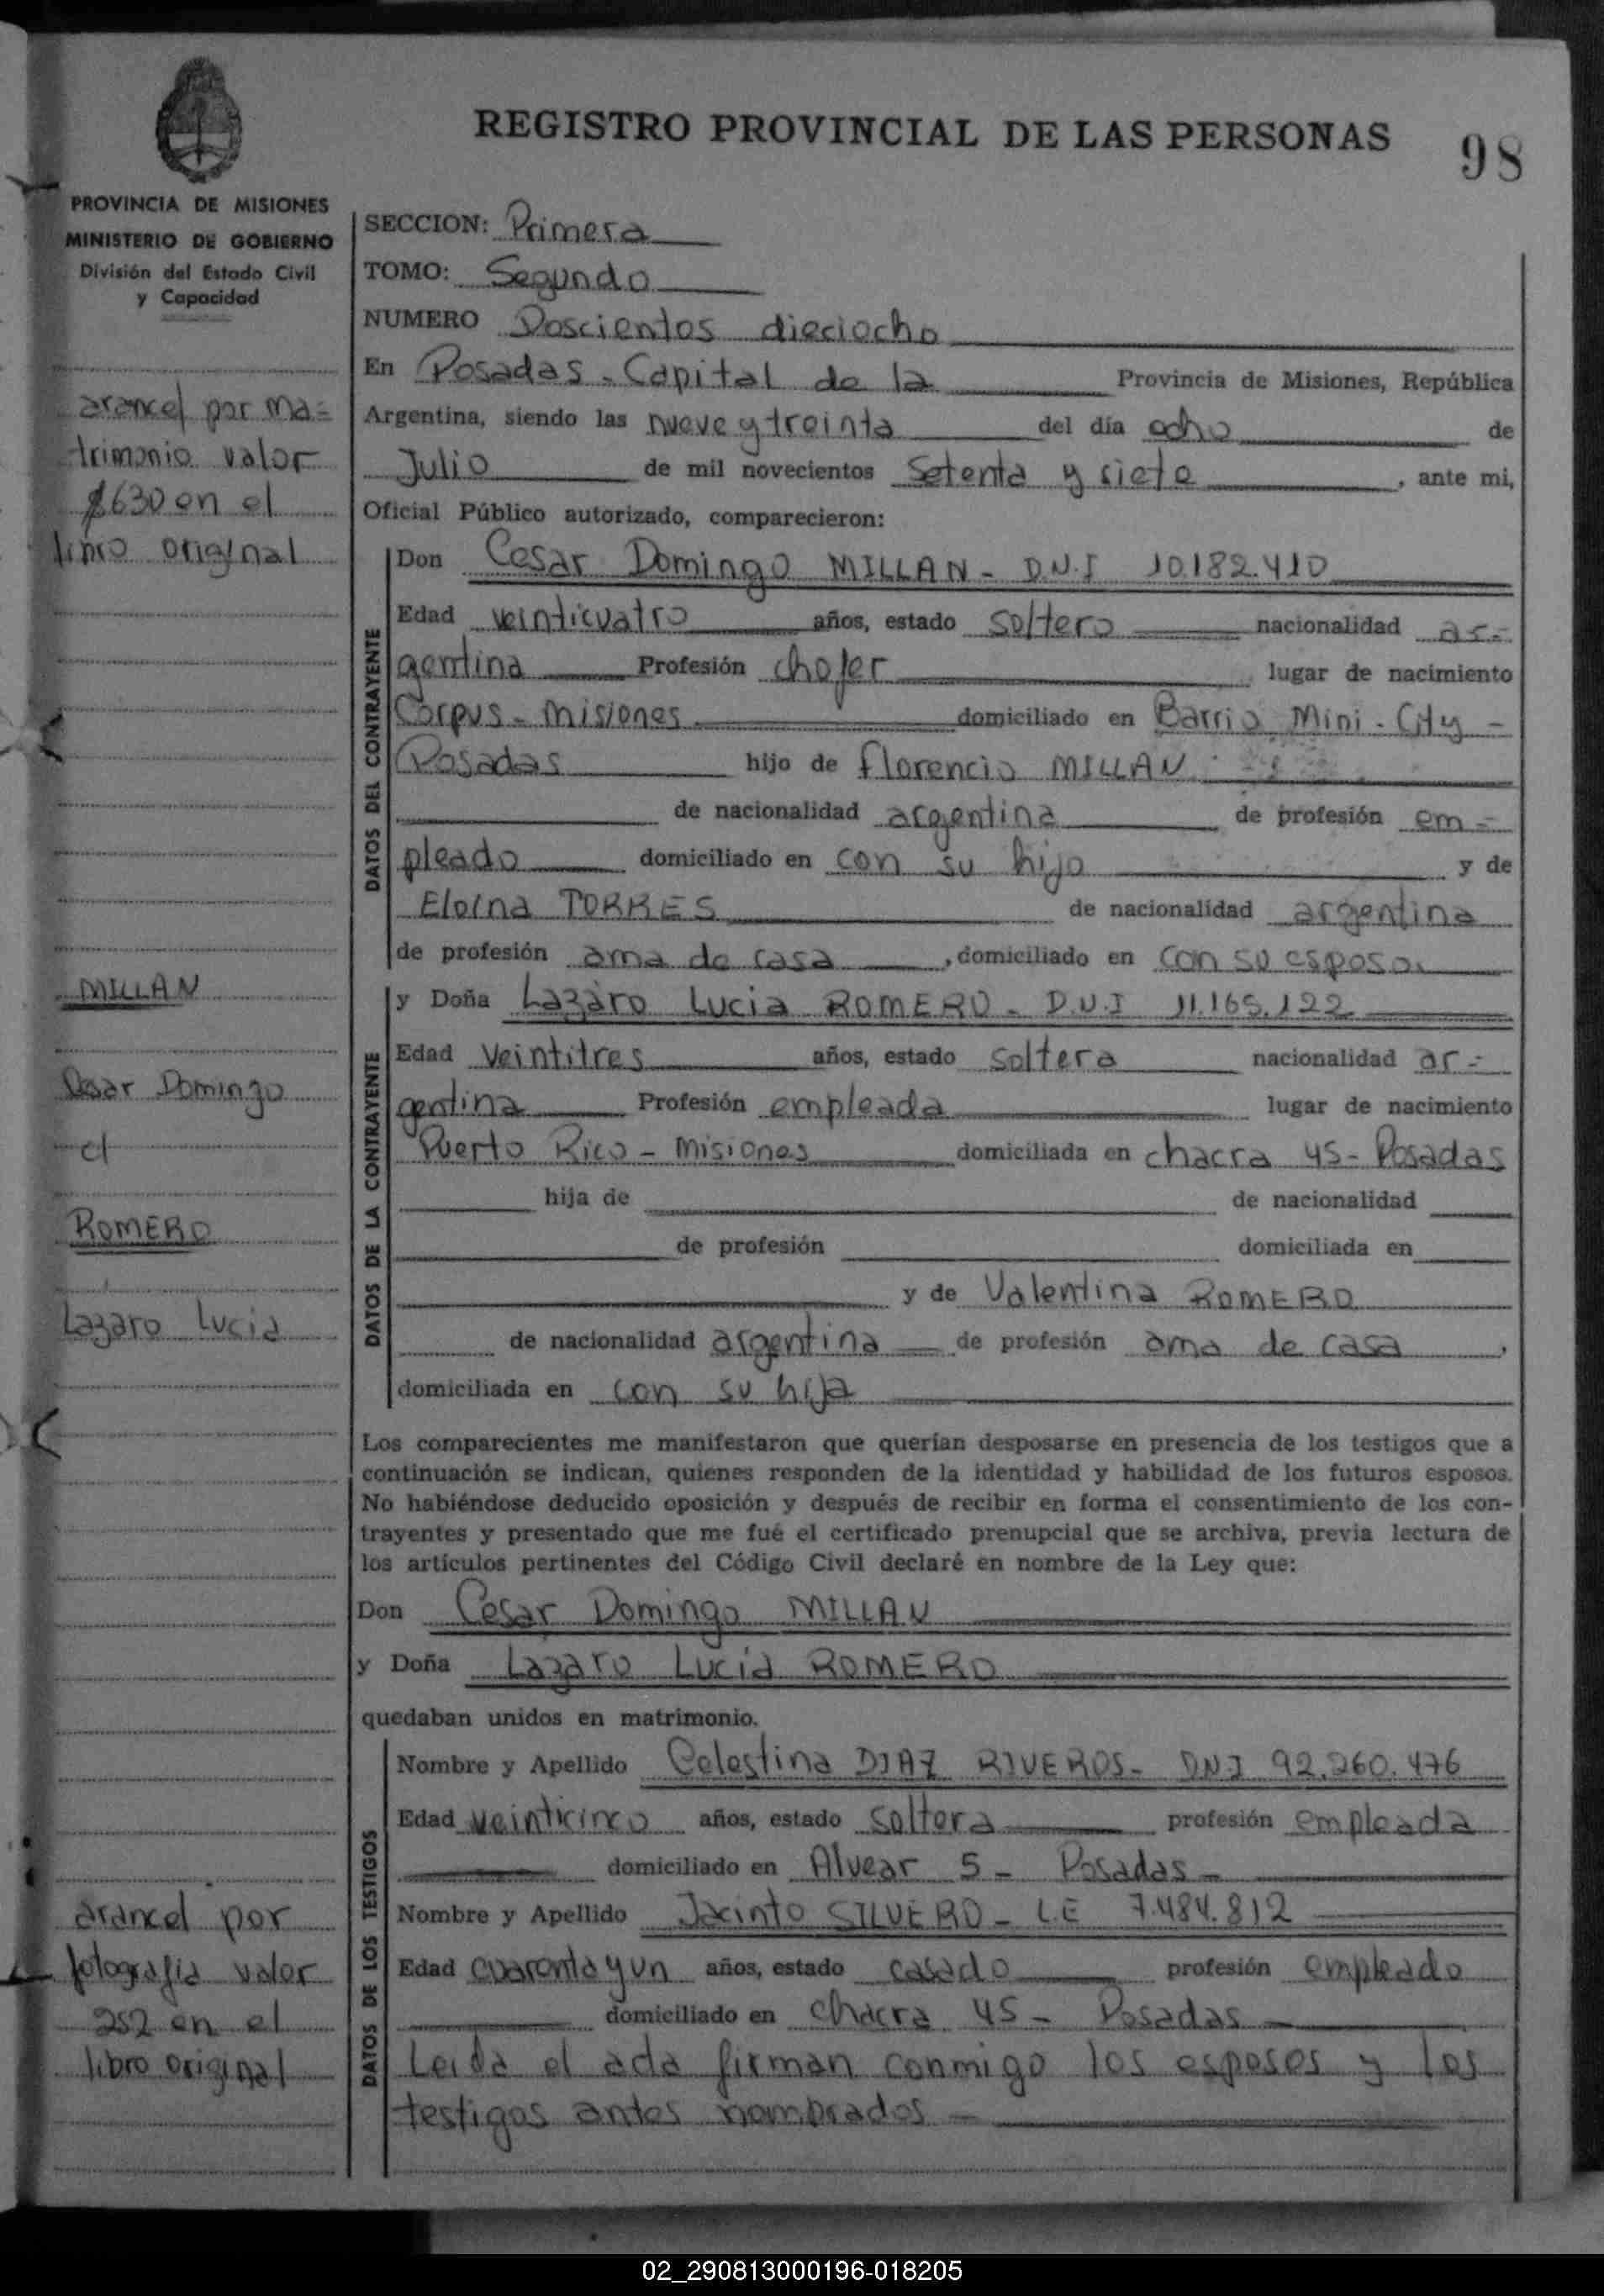 REGISTRO PROVINCIAL DE LAS PERSONAS
98
PROVINCIA DE MISIONES
MINISTERIO DE GOBIERNO
División del Estado Civil
y Capacidad
arancel por ma=
trimonio valor
$630 en el
libro original
MILLAN
Cesar Domingo
c/
ROMERO
Lazaro Lucia
arancel por
fotografia valor
252 en el
libro original
SECCION: Primera
TOMO: Segundo
NUMERO Doscientos dieciocho
En Posadas - Capital de la Provincia de Misiones, República
Argentina, siendo las nueve y treinta del día ocho de
Julio de mil novecientos Setenta y siete, ante mi,
Oficial Público autorizado, comparecieron:
DATOS DEL CONTRAYENTE
Don Cesar Domingo MILLAN - D.N.I 10.182.410
Edad veinticuatro años, estado soltero nacionalidad ar=
gentina Profesión chofer lugar de nacimiento
Corpus - Misiones domiciliado en Barrio Mini - City -
Posadas hijo de Florencio MILLAN
de nacionalidad argentina de profesión em=
pleado domiciliado en con su hijo y de
Eloina TORRES de nacionalidad argentina
de profesión ama de casa, domiciliado en con su esposo.
DATOS DE LA CONTRAYENTE
y Doña Lazaro Lucia ROMERO - D.N.I 11.165.122
Edad veintitres años, estado soltera nacionalidad ar=
gentina Profesión empleada lugar de nacimiento
Puerto Rico - Misiones domiciliada en chacra 45 - Posadas
hija de de nacionalidad
de profesión domiciliada en
y de Valentina ROMERO
de nacionalidad argentina de profesión ama de casa,
domiciliada en con su hija
Los comparecientes me manifestaron que querían desposarse en presencia de los testigos que a
continuación se indican, quienes responden de la identidad y habilidad de los futuros esposos.
No habiéndose deducido oposición y después de recibir en forma el consentimiento de los con-
trayentes y presentado que me fué el certificado prenupcial que se archiva, previa lectura de
los artículos pertinentes del Código Civil declaré en nombre de la Ley que:
Don Cesar Domingo MILLAN
y Doña Lazaro Lucia ROMERO
quedaban unidos en matrimonio.
DATOS DE LOS TESTIGOS
Nombre y Apellido Celestina DIAZ RIVEROS - DNI 92.260.476
Edad veinticinco años, estado soltera profesión empleada
domiciliado en Alvear 5 - Posadas -
Nombre y Apellido Jacinto SILVERO - L.E 7.484.812
Edad cuarenta y un años, estado casado profesión empleado
domiciliado en chacra 45 - Posadas -
Leida el acta firman conmigo los esposos y los
testigos antes nombrados -
02_290813000196-018205